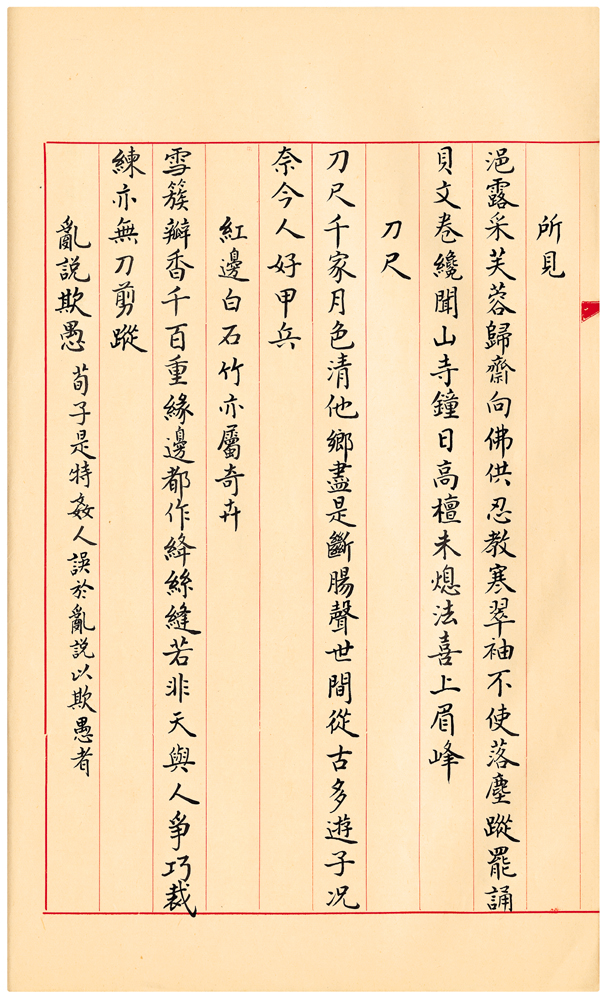 所見
浥露采芙蓉歸齋向佛供忍教寒翠袖不使落塵蹤罷誦
貝文卷纔聞山寺鐘日高檀未熄法喜上眉峰
刀尺
刀尺千家月色清他鄉盡是斷腸聲世間從古多遊子况
奈今人好甲兵
紅邊白石竹亦屬奇卉
雪簇瓣香千百重緣邊都作絳絲縫若非天與人爭巧裁
練亦無刀剪蹤
亂說欺愚 荀子是特姦人誤於亂說以欺愚者